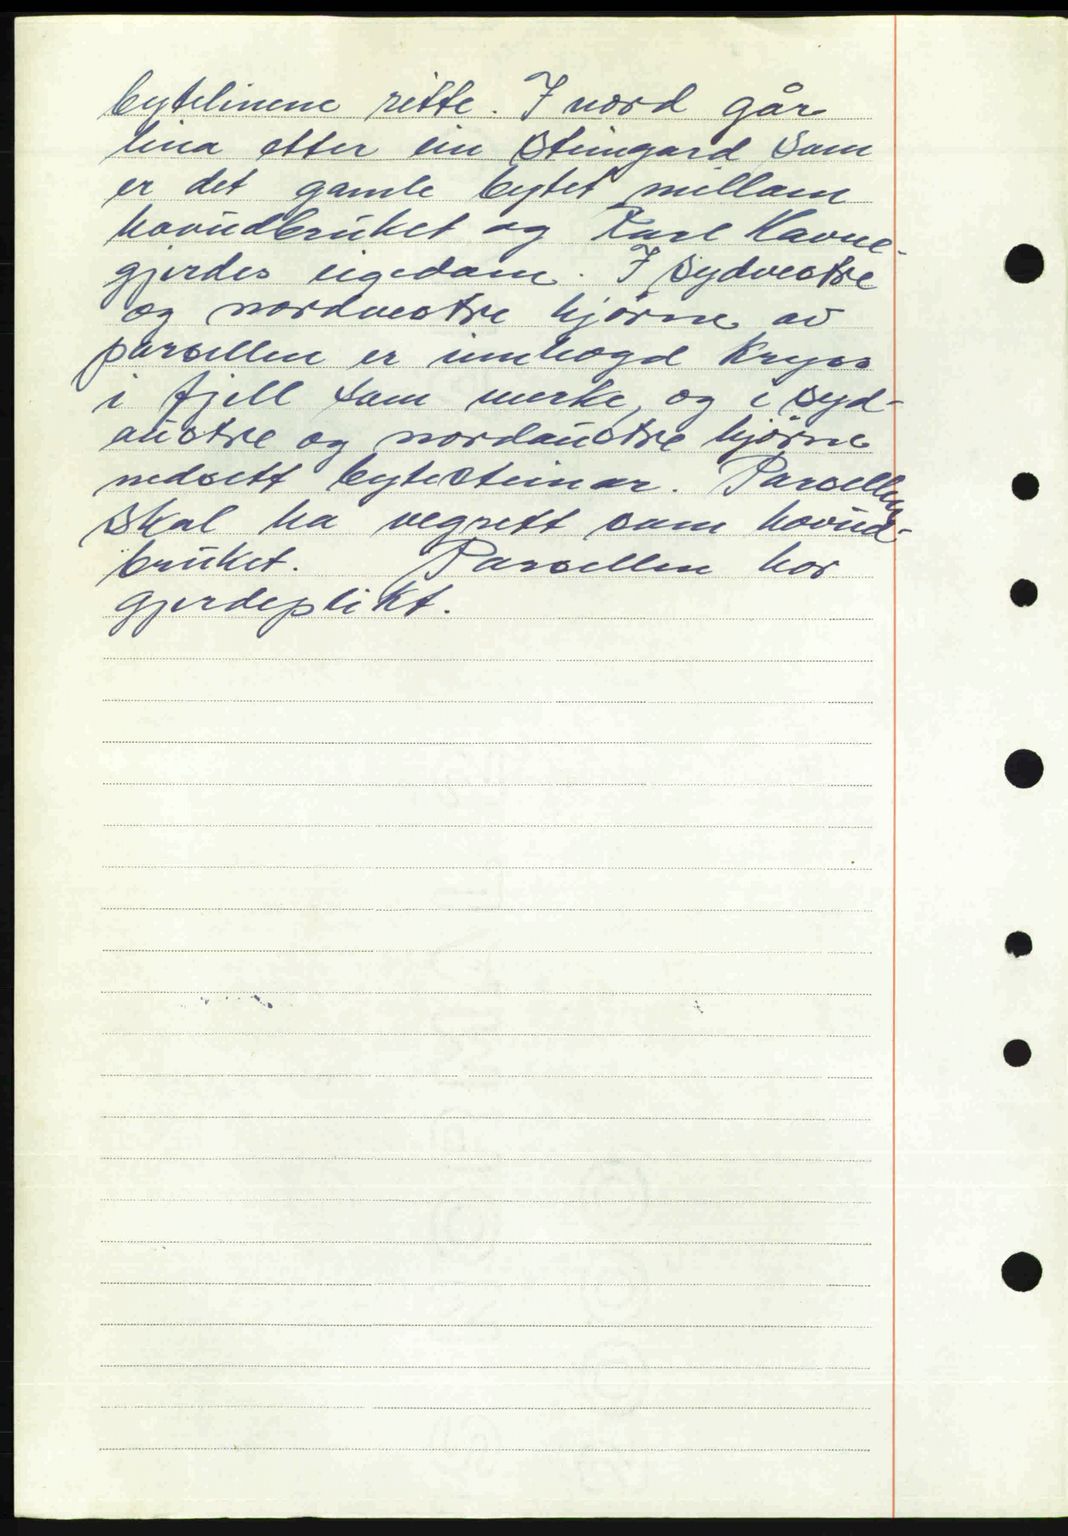 bytelinene rette. I nord går
lina etter ein steingard som
er det gamle bytet millom
hovudbruket og Karl Havne-
gjerdes eigedom. I sydvestre
og nordvestre hjørne av
parsellen er innhogd kryss
i fjell som merke, og i syd-
austre og nordaustre hjørne
nedsett bytesteinar. Parsellen
skal ha vegrett som hovud-
bruket. Parsellen har
gjerdeplikt.